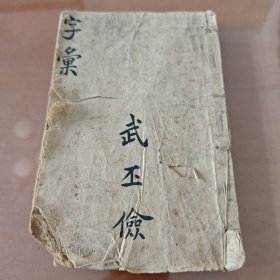 字彙
武丕儉